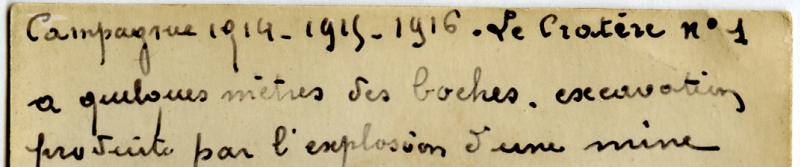 Campagne 1914-1915-1916. Le Cratère n° 1
a quelques mètres des boches. excavation
produite par l'explosion d'une mine